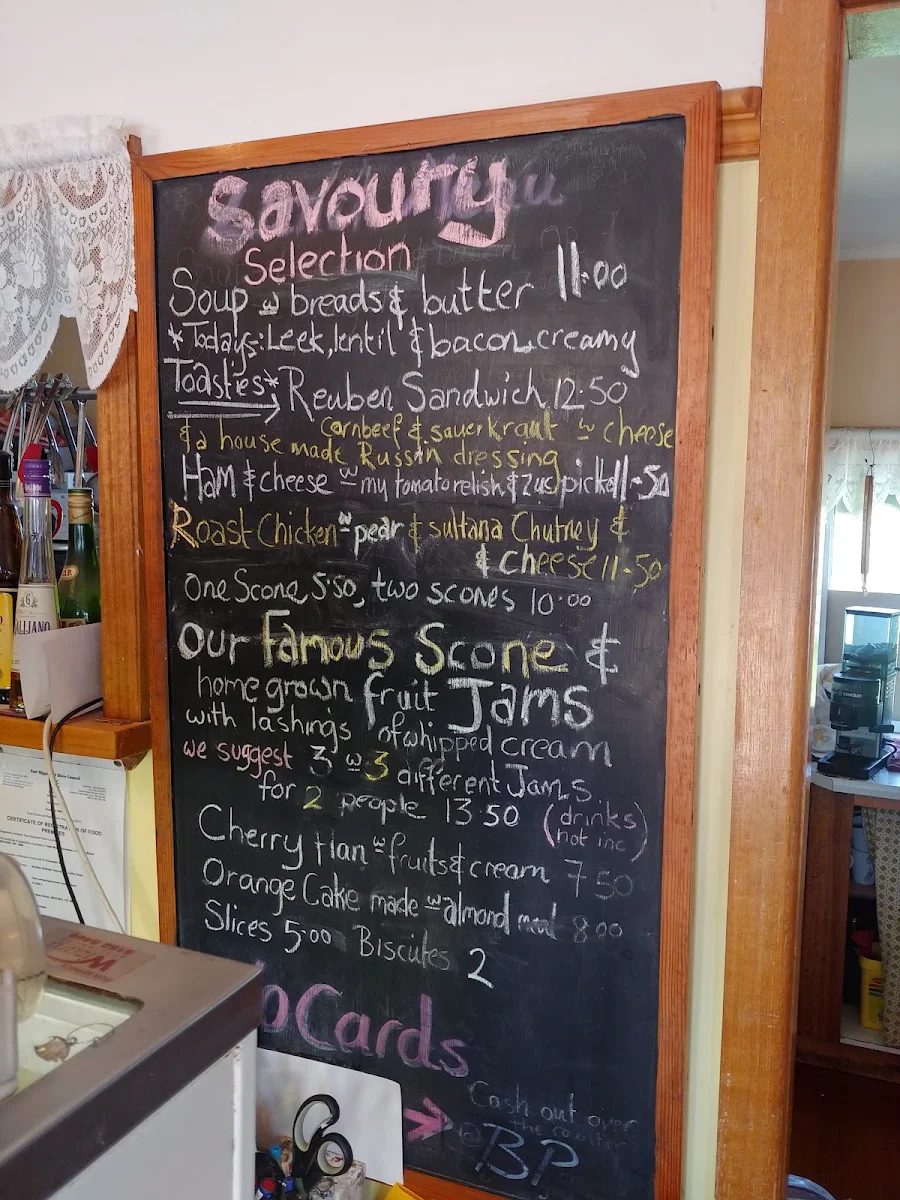 Savoury
Selection
Soup w breads & butter 11.00
*Todays: Leek, lentil & bacon, creamy
Toasties* Reuben Sandwich 12.50
Cornbeef & sauerkraut w cheese
& a house made Russin dressing
Ham & cheese w my tomato relish & zuc pickel 11.50
Roast Chicken w pear & sultana Chutney &
& cheese 11.50
One Scone 5.50, two scones 10.00
Our Famous Scone &
home grown fruit Jams
with lashings of whipped cream
we suggest 3 w 3 different Jams
for 2 people 13.50 (drinks
not inc)
Cherry Flan w fruits & cream 7.50
Orange Cake made w almond meal 8.00
Slices 5.00 Biscuits 2
Cards
Cash out over
the counter
@ BP
CERTIFICATE OF REGISTRATION OF FOOD
PREMISES